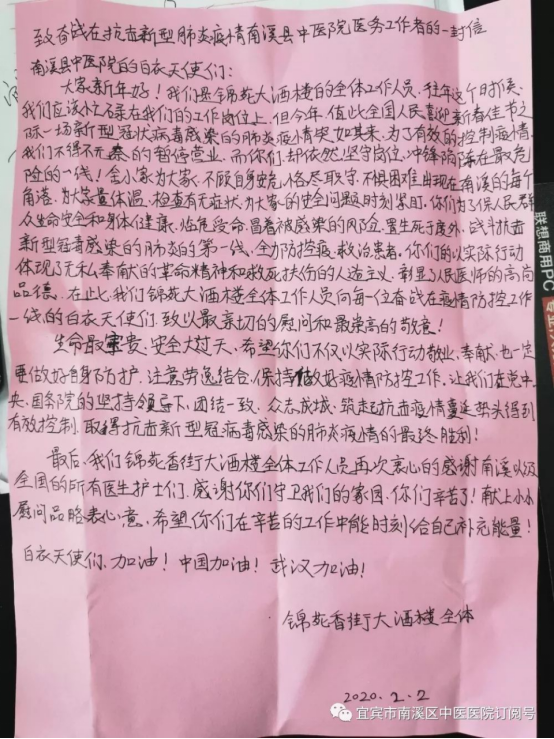 致奋战在抗击新型肺炎疫情南溪县中医院医务工作者的一封信
南溪县中医院的白衣天使们：
大家新年好！我们是锦苑大酒楼的全体工作人员，往年这个时候，
我们应该忙碌在我们的工作岗位上，但今年，值此全国人民喜迎新春佳节之
际一场新型冠状病毒感染的肺炎疫情突如其来，为了有效的控制疫情，
我们不得不无奈的暂停营业，而你们，却依然坚守岗位，冲锋陷阵在最危
险的一线！舍小家为大家，不顾自身安危，恪尽职守，不惧困难出现在南溪的每个
角落，为大家量体温，检查有无症状，为大家的安全问题时刻紧盯，你们为了保人民群
众生命安全和身体健康，临危受命，冒着被感染的风险，置生死于度外，战斗抗击
新型冠毒感染的肺炎的第一线，全力防控疫，救治患者，你们的以实际行动
体现了无私奉献的革命精神和救死扶伤的人道主义，彰显了人民医师的高尚
品德，在止匕，我们锦苑大酒楼全体工作人员向每一位奋战在疫情防控工作
一线的白衣天使们，致以最亲切的慰问和最崇高的敬意！
生命最宝贵，安全大过天，希望你们不仅以实际行动敬业，奉献，也一定
要做好自身防护，注意劳逸结合，保持做好疫情防控工作，让我们在党中
央、国务院的坚持领导下，团结一致，众志成城，筑起抗击疫情蔓延势头得到
有效控制，取得抗击新型冠病毒感染的肺炎疫情的最终胜利！
最后，我们锦苑香街大酒楼全体工作人员再次衷心的感谢南溪以及
全国的所有医生护士们，感谢你们守卫我们的家园，你们辛苦了！献上小小
慰问品略表心意，希望你们在辛苦的工作中能时刻给自己补充能量！
白衣天使们，加油！中国加油！武汉加油！
锦苑香街大酒楼全体
2020.2.2
联想商用PC
宜宾市南溪区中医医院订阅号